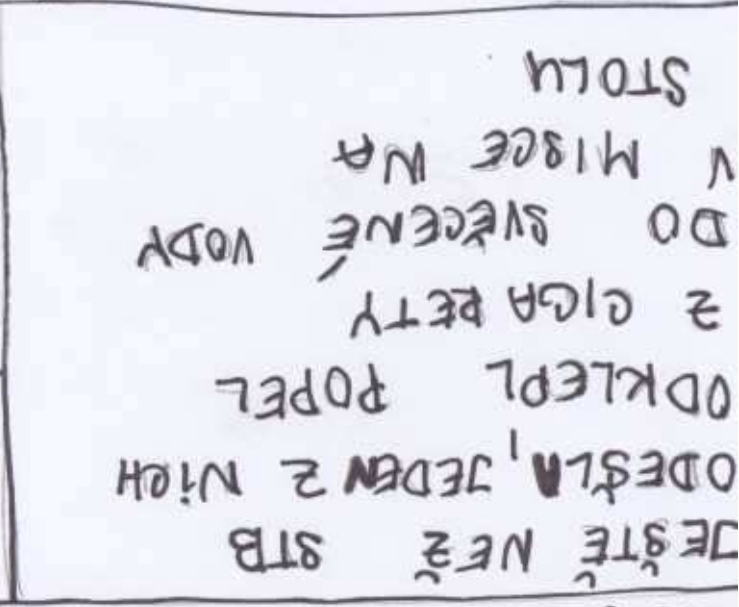 JEŠTĚ NEŽ STB
ODEŠLA, JEDEN Z NICH
ODKLEPL POPEL
Z CIGARETY
DO SVĚCENÉ VODY
V MISCE NA
STOLU